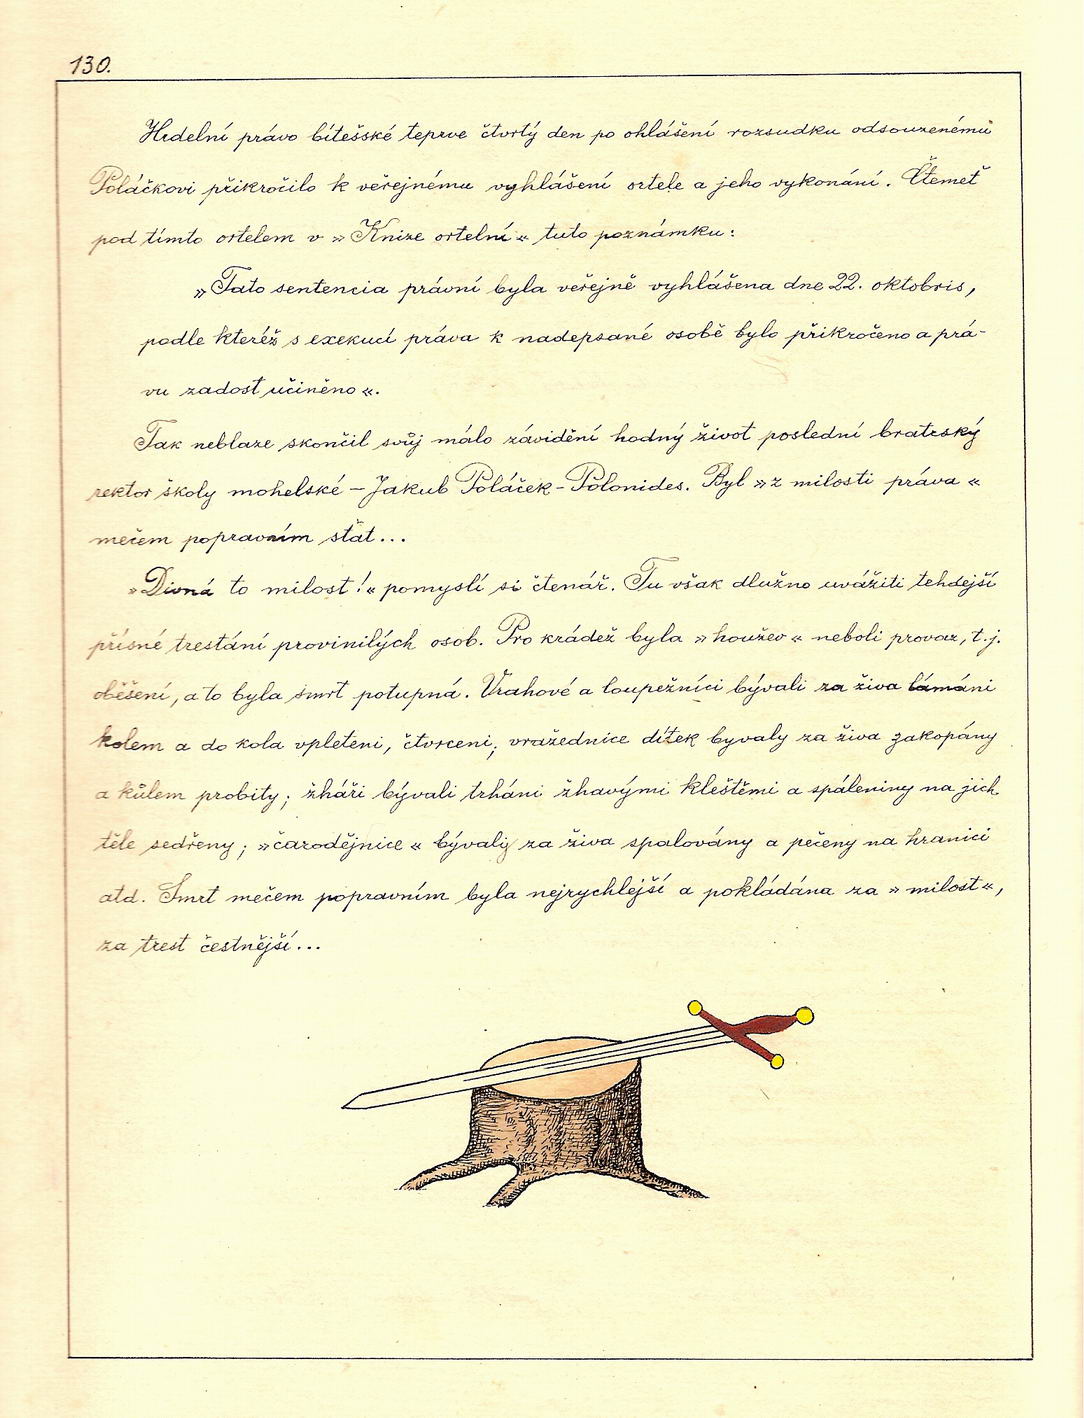 130.
Hrdelní právo bítešské teprve čtvrtý den po ohlášení rozsudku odsouzenému
Poláčkovi přikročilo k veřejnému vyhlášení ortele a jeho vykonání. Čtemeť
pod tímto ortelem v »Knize ortelní« tuto poznámku:
»Tato sentencia právní byla veřejně vyhlášena dne 22. oktobris,
podle kteréž s exekucí práva k nadepsané osobě bylo přikročeno a prá-
vu zadosť učiněno«.
Tak neblaze skončil svůj málo závidění hodný život poslední bratrský
rektor školy mohelské – Jakub Poláček – Polonides. Byl »z milosti práva«
mečem popravním sťat...
»Divná to milost!« pomyslí si čtenář. Tu však dlužno uvážiti tehdejší
přísné trestání provinilých osob. Pro krádež byla »houžev« neboli provaz, t.j.
oběšení, a to byla smrt potupná. Vrahové a loupežníci bývali za živa lámáni
kolem a do kola vpleteni, čtvrceni; vražednice dítek byvaly za živa zakopány
a kůlem probity; žháři bývali trháni žhavými kleštěmi a spáleniny na jich
těle sedřeny; »čarodějnice« bývaly za živa spalovány a pečeny na hranici
atd. Smrt mečem popravním byla nejrychlejší a pokládána za »milost«,
za trest čestnější...